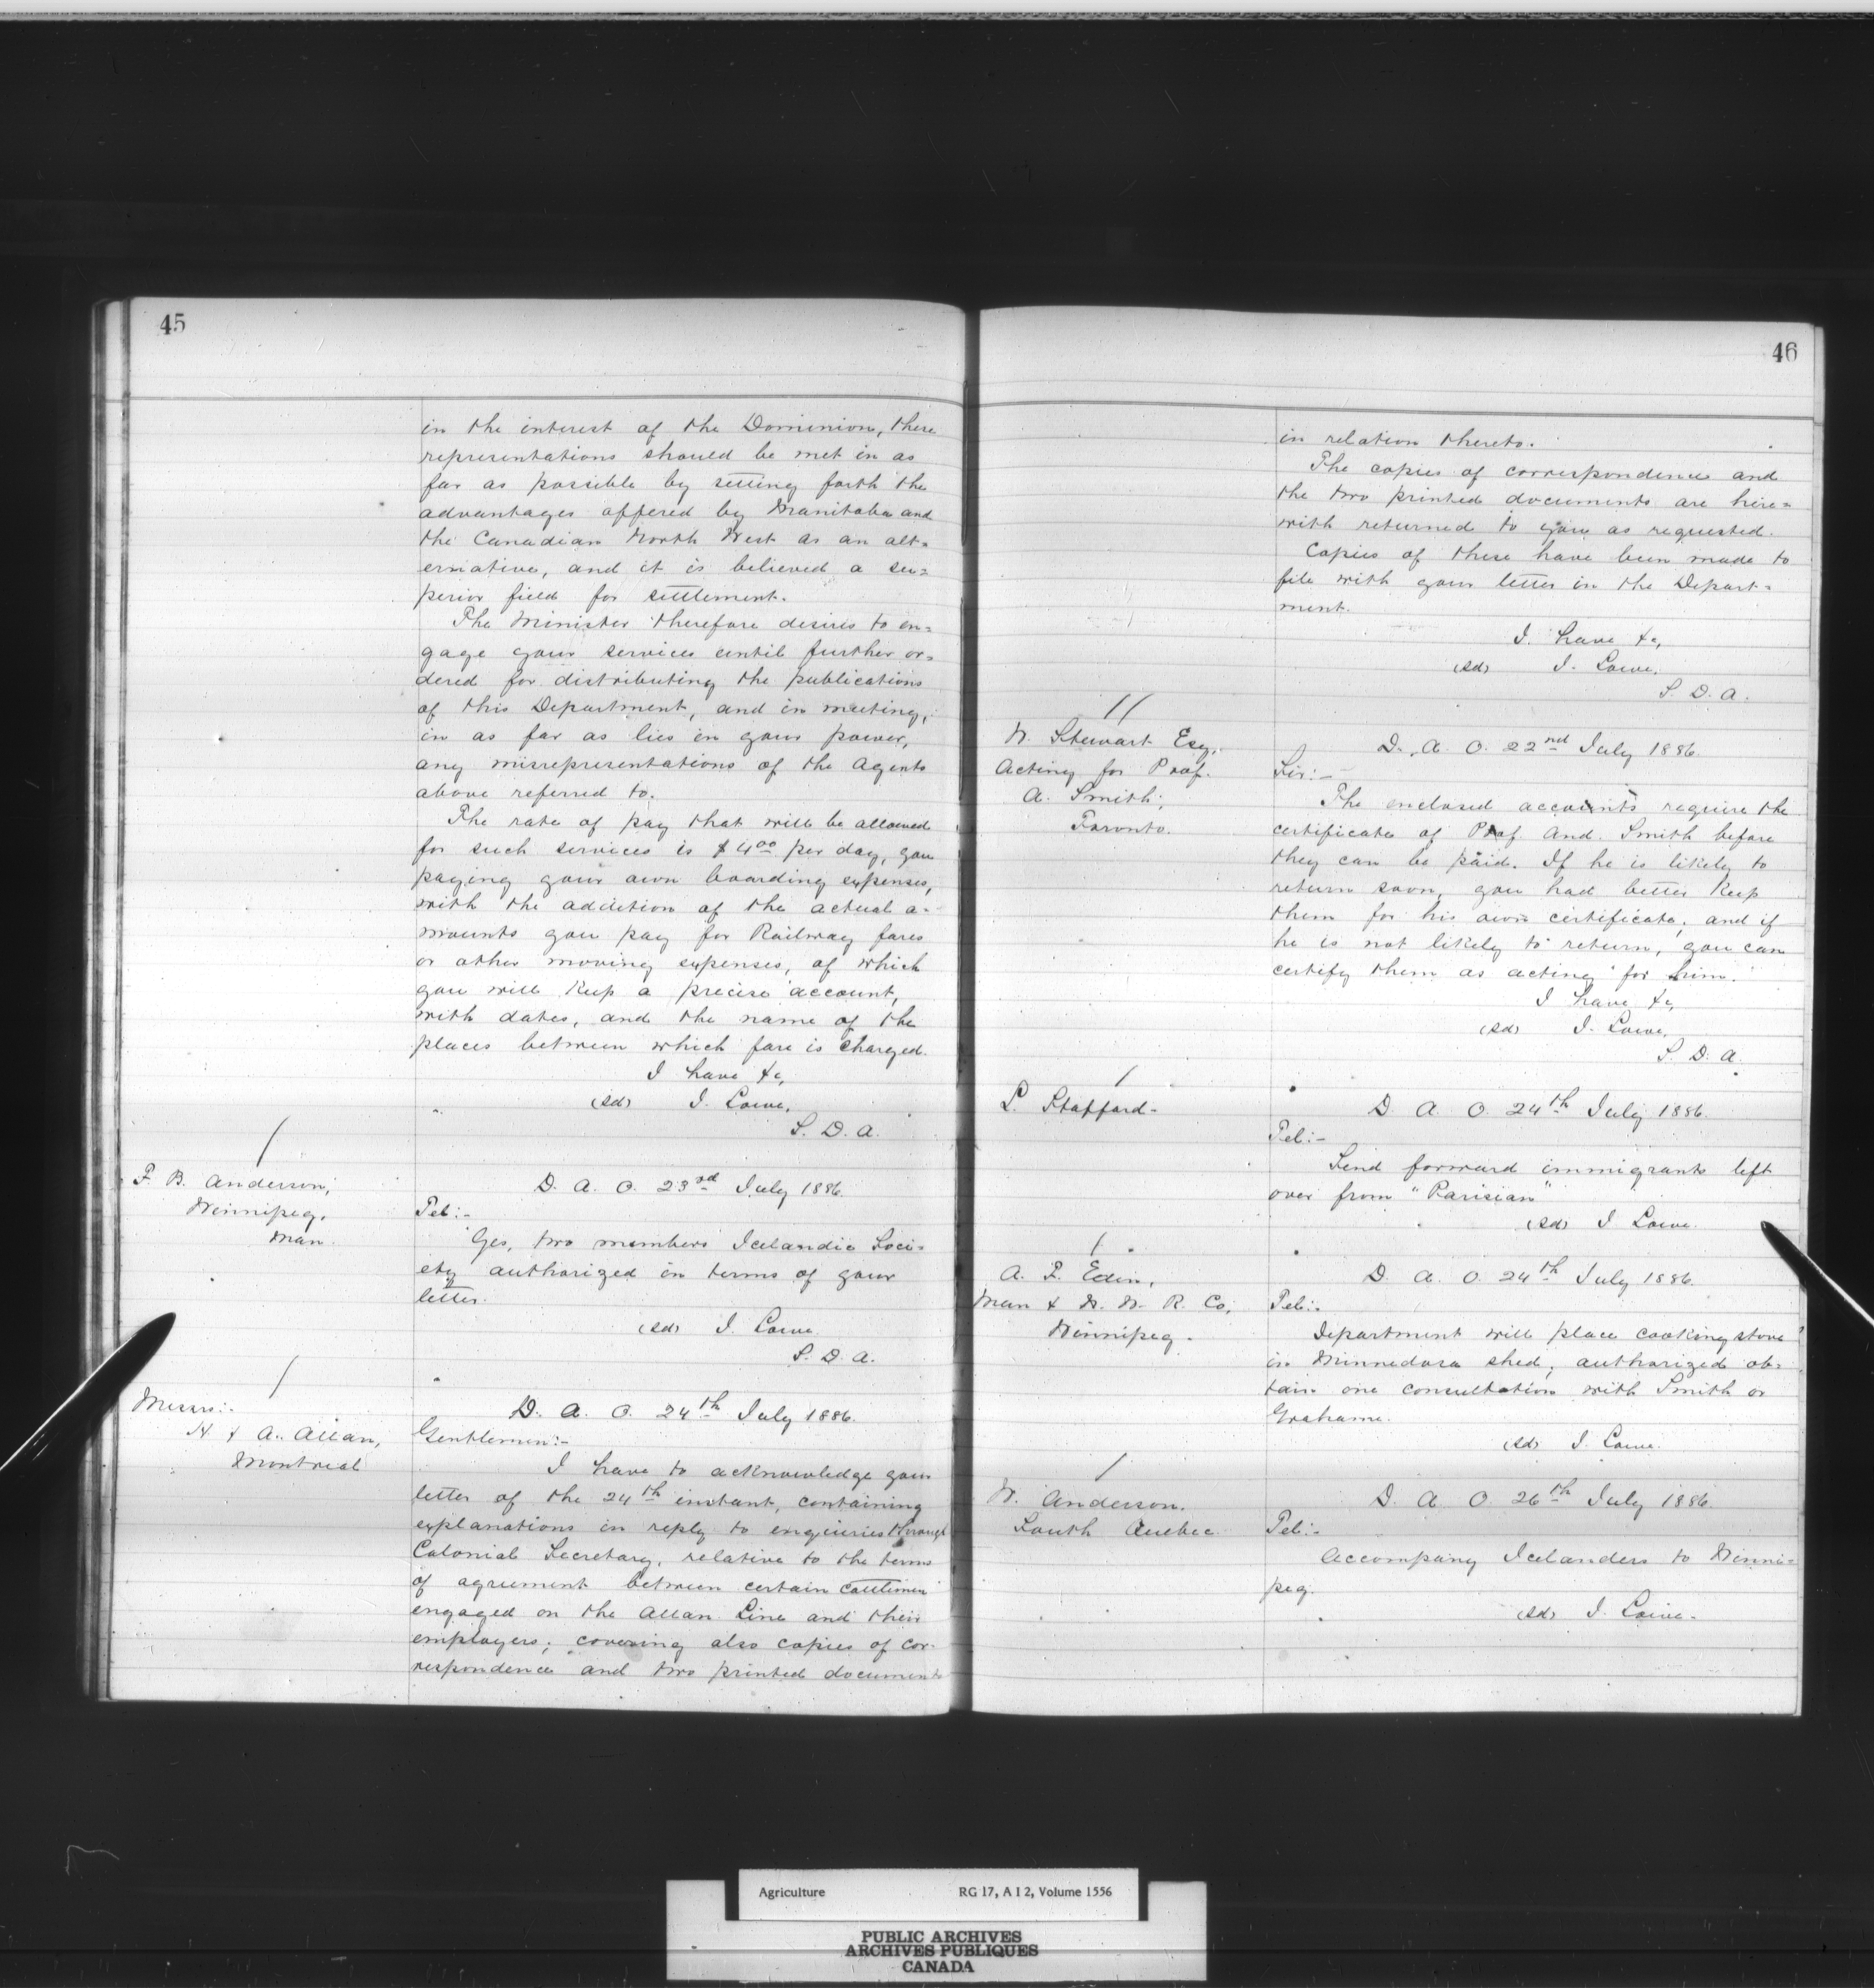 45
in the interest of the Dominion, these
representations should be met in as
far as possible by setting forth the
advantages offered by Manitoba and
the Canadian North West as an alt=
ernative, and it is believed a su=
perior field for settlement.
The Minister therefore desires to en=
gage your services until further or=
dered for distributing the publications
of this Department, and in meeting,
in as far as lies in your power,
any misrepresentations of the Agents
above referred to.
The rate of pay that will be allowed
for such services is $4.00 per day, you
paying your own boarding expenses,
with the addition of the actual a=
mounts you pay for Railway fares
or other moving expenses, of which
you will keep a precise account,
with dates, and the name of the
places between which fare is charged.
I have &c,
(sd) J. Lowe,
S. D. A.
F. B. Anderson,
Winnipeg,
Man.
D. A. O. 23rd July 1886.
Tel:-
Yes, two members Icelandic Soci=
ety authorized in terms of your
letter.
(sd) J. Lowe
S. D. A.
Messrs:-
H. & A. Allan,
Montreal
D. A. O. 24th July 1886.
Gentlemen:-
I have to acknowledge your
letter of the 24th instant, containing
explanations in reply to enquiries through
Colonial Secretary, relative to the terms
of agreement between certain cattlemen
engaged on the Allan Line and their
employers; covering also copies of cor-
respondence and two printed documents
46
in relation thereto.
The copies of correspondence and
the two printed documents are here=
with returned to you as requested.
Copies of these have been made to
file with your letter in the Depart=
ment.
I have &c,
(sd) J. Lowe,
S. D. A.
W. Stewart Esq,
Acting for Prof.
A. Smith,
Toronto.
D. A. O. 22nd July 1886.
Sir:-
The enclosed accounts require the
certificate of Prof. And. Smith before
they can be paid. If he is likely to
return soon, you had better keep
them for his own certificate, and if
he is not likely to return, you can
certify them as acting for him.
I have &c,
(sd) J. Lowe,
S. D. A.
L. Stafford-
D. A. O. 24th July 1886.
Tel:-
Send forward immigrants left
over from "Parisian"
(sd) J. Lowe.
A. F. Eden,
Man & N. W. R. Co,
Winnipeg.
D. A. O. 24th July 1886.
Tel:-
Department will place cooking stove
in Minnedosa shed; authorized ob-
tain one consultation with Smith or
Grahame.
(sd) J. Lowe.
W. Anderson.
South Quebec
D. A. O. 26th July 1886.
Tel:-
Accompany Icelanders to Winni=
peg.
(sd) J. Lowe.
Agriculture RG 17, A I 2, Volume 1556
PUBLIC ARCHIVES
ARCHIVES PUBLIQUES
CANADA